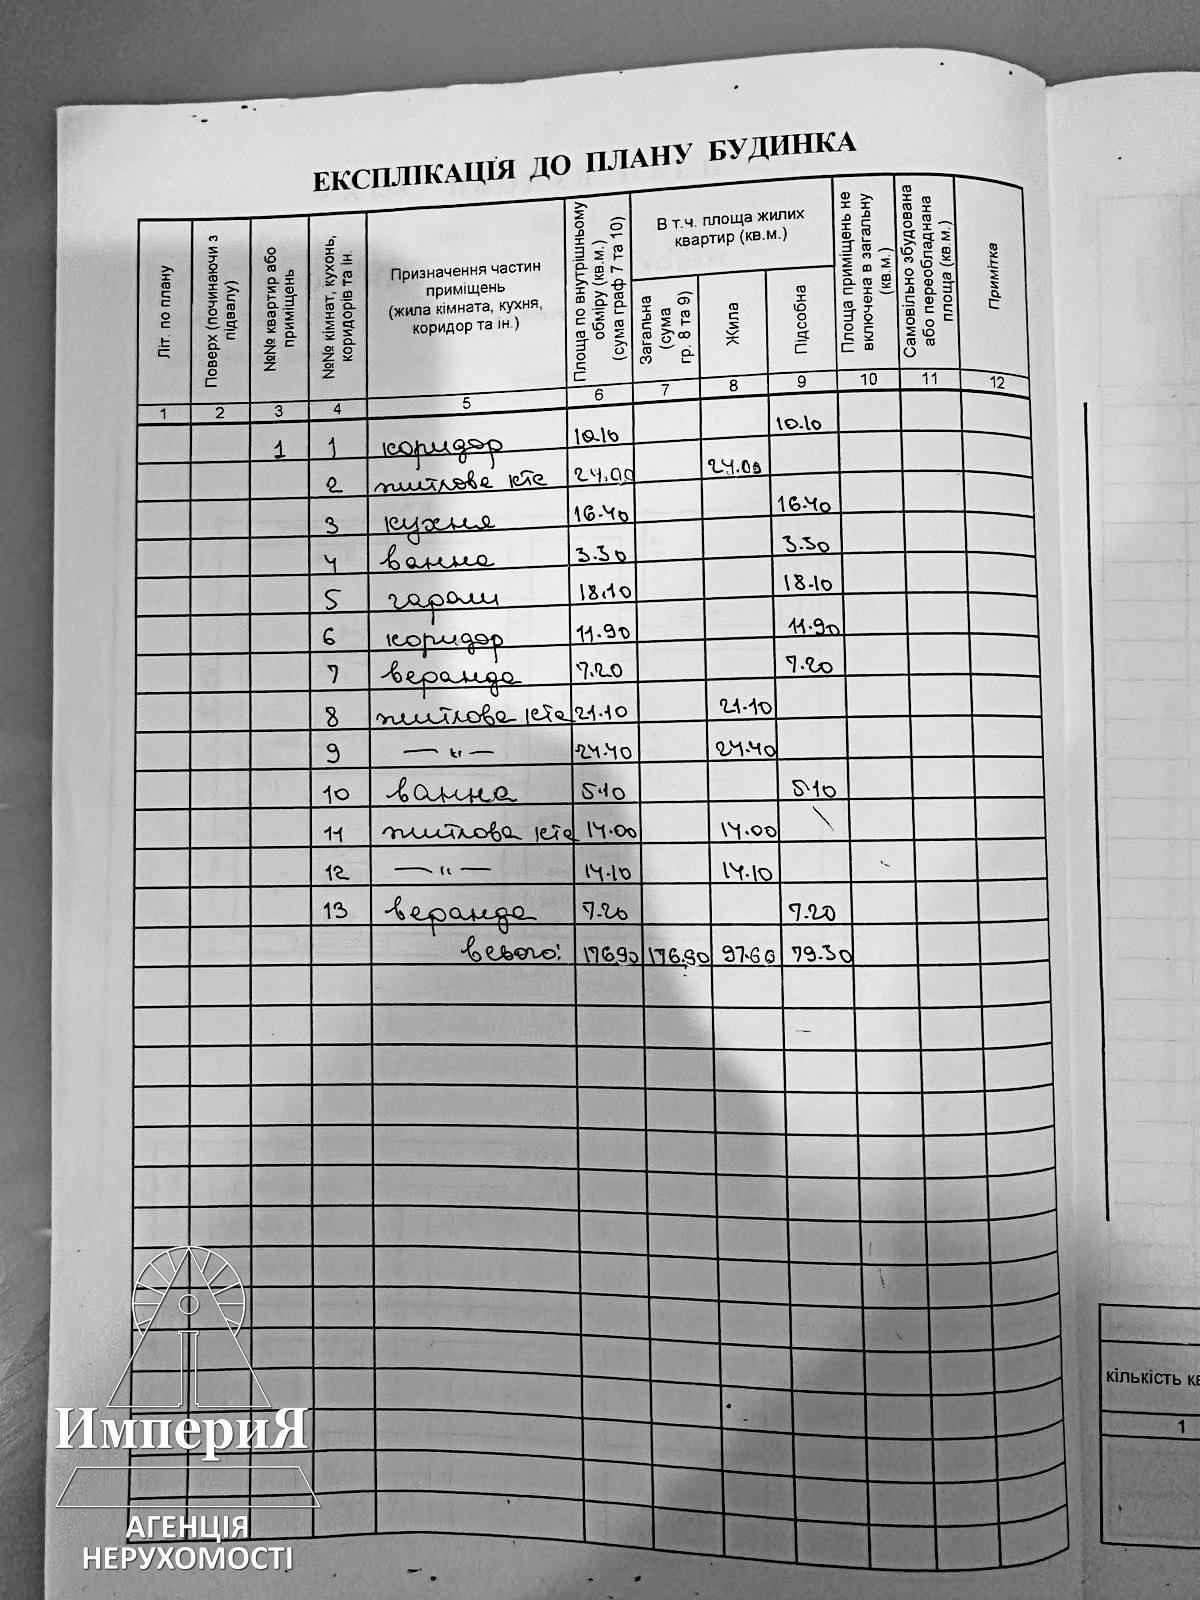 ЕКСПЛІКАЦІЯ ДО ПЛАНУ БУДИНКА
Літ. по плану
Поверх (починаючи з підвалу)
№№ квартир або приміщень
№№ кімнат, кухонь, коридорів та ін.
Призначення частин приміщень (жила кімната, кухня, коридор та ін.)
Площа по внутрішньому обміру (кв.м.) (сума граф 7 та 10)
В т.ч. площа жилих квартир (кв.м.)
Загальна (сума гр. 8 та 9)
Жила
Підсобна
Площа приміщень не включена в загальну (кв.м.)
Самовільно збудована або переобладнана площа (кв.м.)
Примітка
1 2 3 4 5 6 7 8 9 10 11 12
1 1 коридор 10.10 10.10
2 житлова кта 24.00 24.00
3 кухня 16.40 16.40
4 ванна 3.30 3.30
5 гараж 18.10 18.10
6 коридор 11.90 11.90
7 веранда 7.20 7.20
8 житлова кта 21.10 21.10
9 — " — 24.40 24.40
10 ванна 5.10 5.10
11 житлова кта 14.00 14.00
12 — " — 14.10 14.10
13 веранда 7.20 7.20
всього: 176.90 176.90 97.60 79.30
ИмпериЯ
АГЕНЦІЯ
НЕРУХОМОСТІ
кількість кв
1